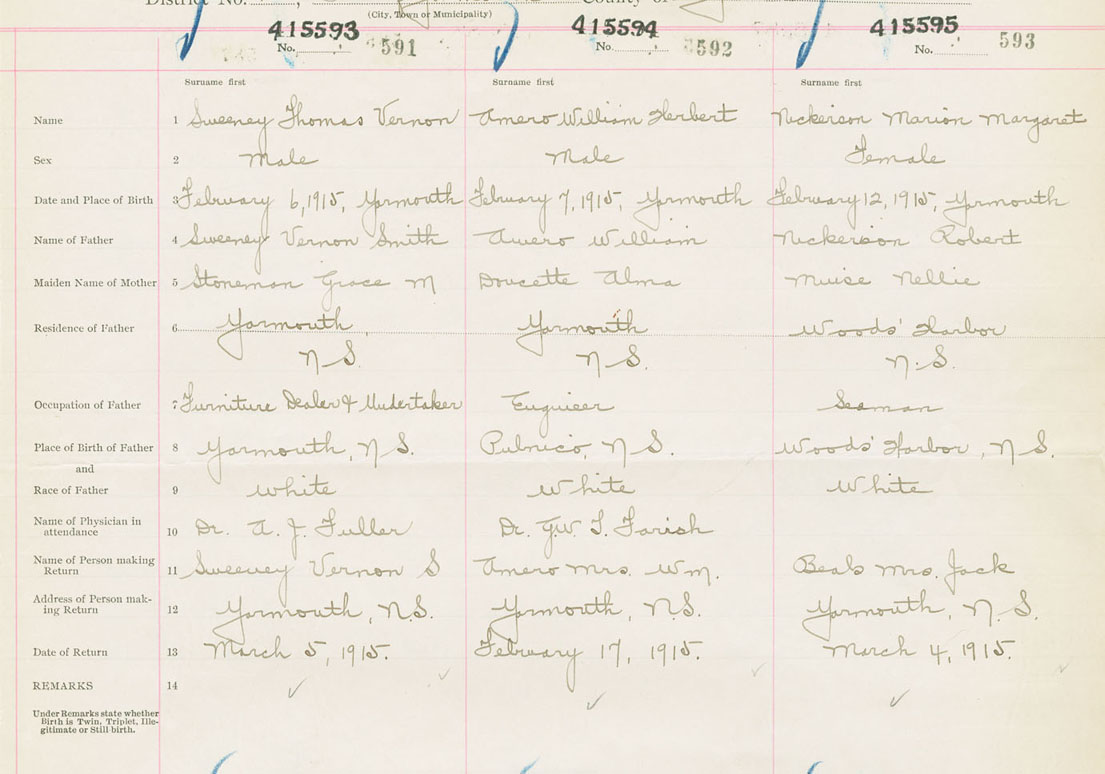 District No. County of
(City, Town or Municipality)
415593 415594 415595
No. 591 No. 592 No. 593
Surname first Surname first Surname first
Name 1 Sweeney Thomas Vernon Amero William Herbert Nickerson Marion Margaret
Sex 2 Male Male Female
Date and Place of Birth 3 February 6, 1915, Yarmouth February 7, 1915, Yarmouth February 12, 1915, Yarmouth
Name of Father 4 Sweeney Vernon Smith Amero William Nickerson Robert
Maiden Name of Mother 5 Stoneman Grace M Doucette Alma Muise Nellie
Residence of Father 6 Yarmouth, Yarmouth Woods' Harbor
N.S. N-S. N.S.
Occupation of Father 7 Furniture Dealer & Undertaker Engineer Seaman
Place of Birth of Father 8 Yarmouth, N S. Pubnico, N S. Woods' Harbor, N S.
and
Race of Father 9 White White White
Name of Physician in
attendance 10 Dr. A. J. Fuller Dr. G.W. T. Farish
Name of Person making
Return 11 Sweeney Vernon S Amero Mrs. Wm. Beals Mrs. Jack
Address of Person mak-
ing Return 12 Yarmouth, N.S. Yarmouth, N.S. Yarmouth, N.S.
Date of Return 13 March 5, 1915. February 17, 1915. March 4, 1915.
REMARKS 14
Under Remarks state whether
Birth is Twin, Triplet, Ille-
gitimate or Still birth.